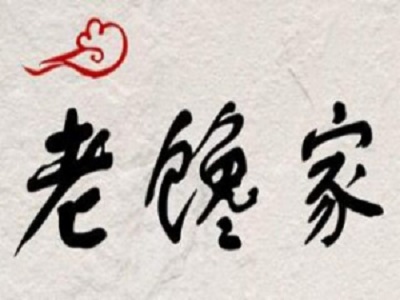 老馋家